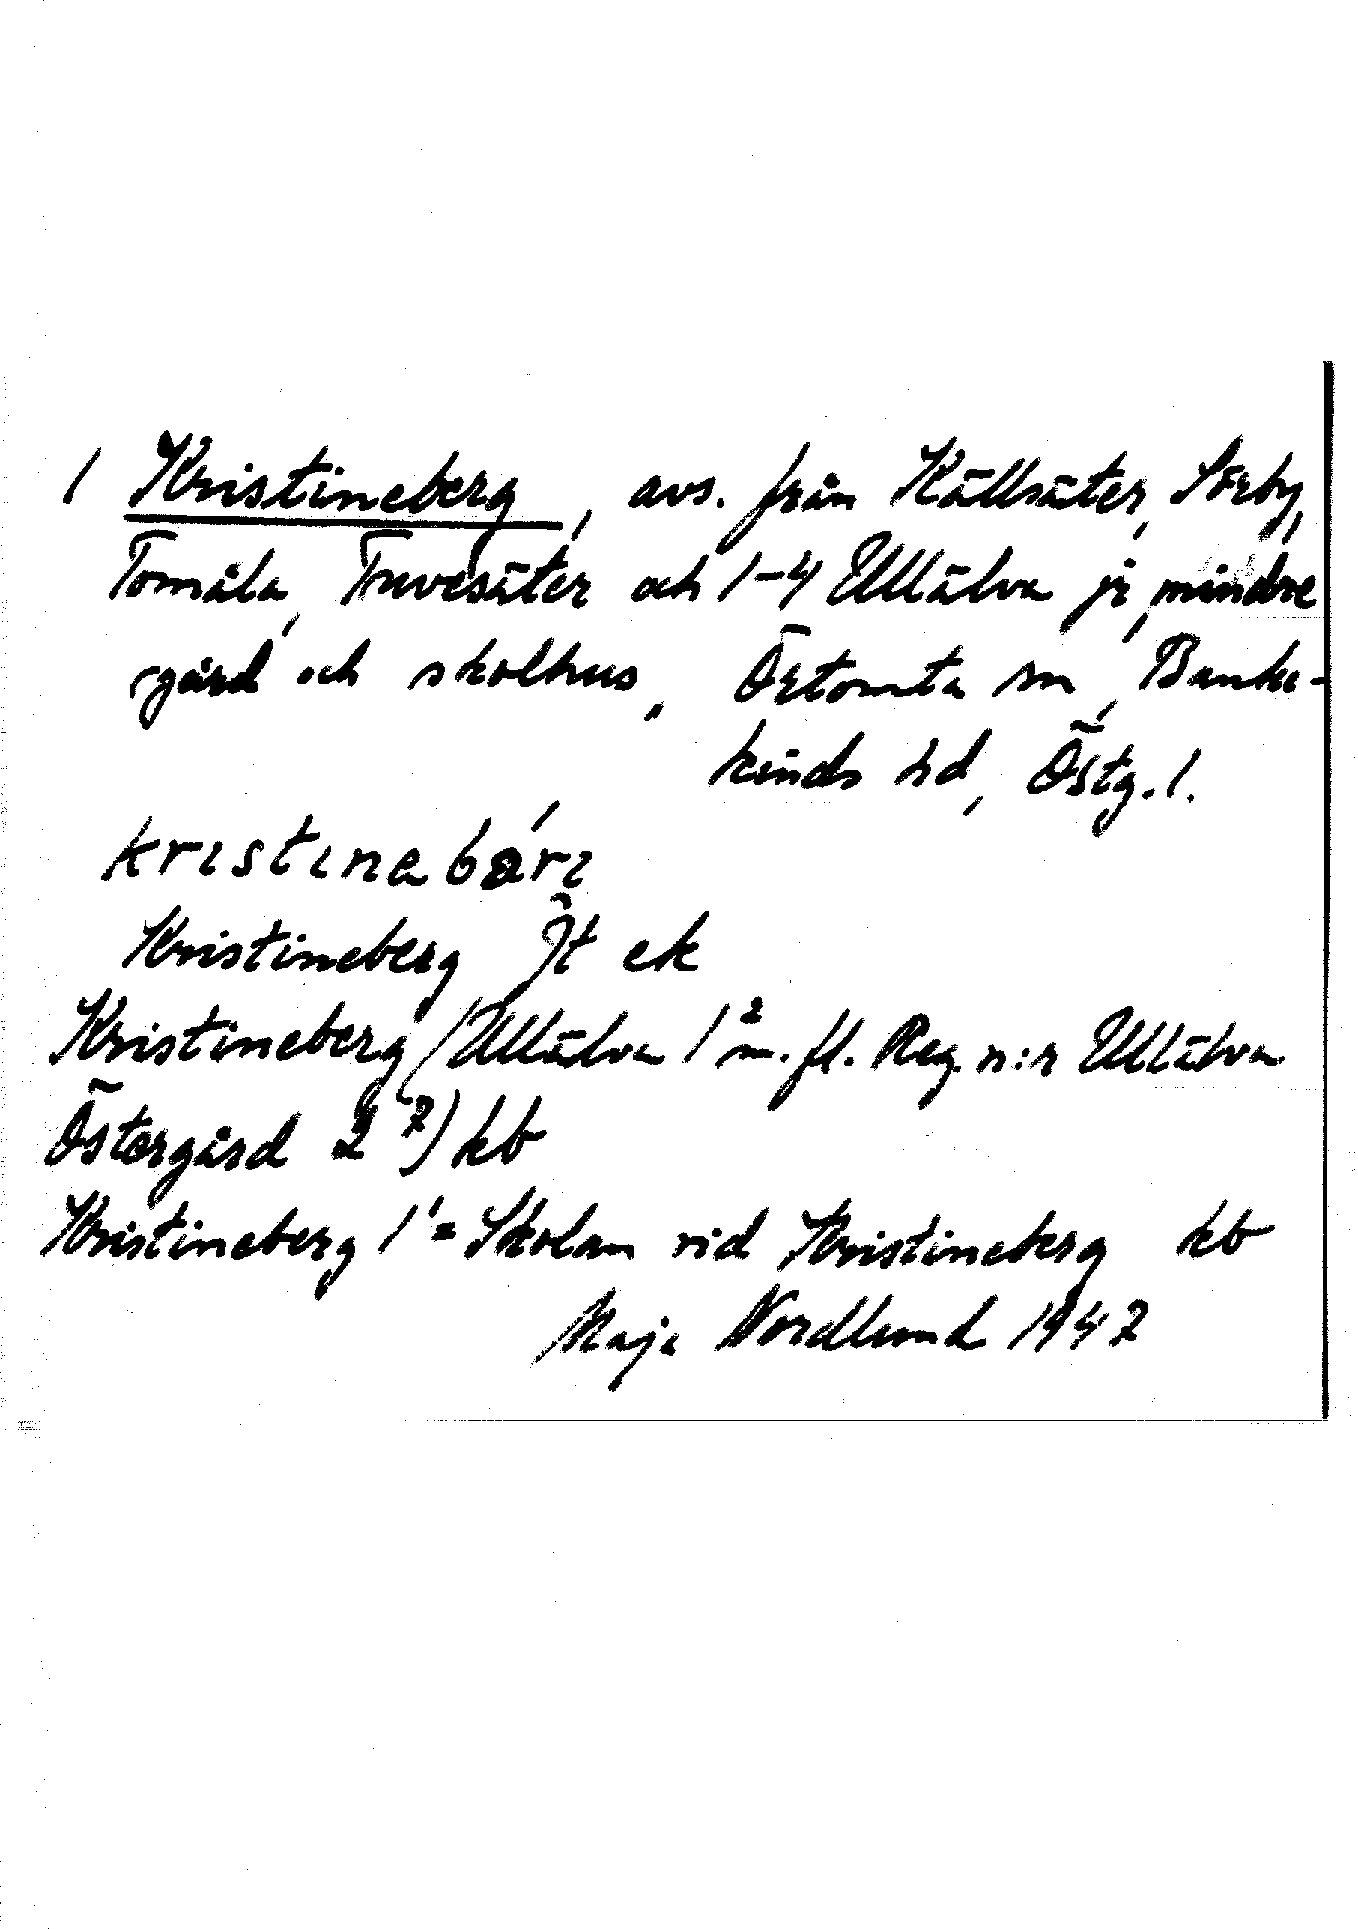 1 Kristineberg, avs. från Källsäter, Sörby,
Tomåla, Truvesäter och 1-4 Ullälva jr, mindre
gård och skolhus, Örtomta sn, Banke-
kinds hd, Östg. l.
kristinebärj
Kristineberg Jt ek
Kristineberg (Ullälva 1² m. fl. Reg. n:r Ullälva
Östergård 2⁷) kb
Kristineberg 1¹ = Skolan vid Kristineberg kb
Maja Nordlund 1947